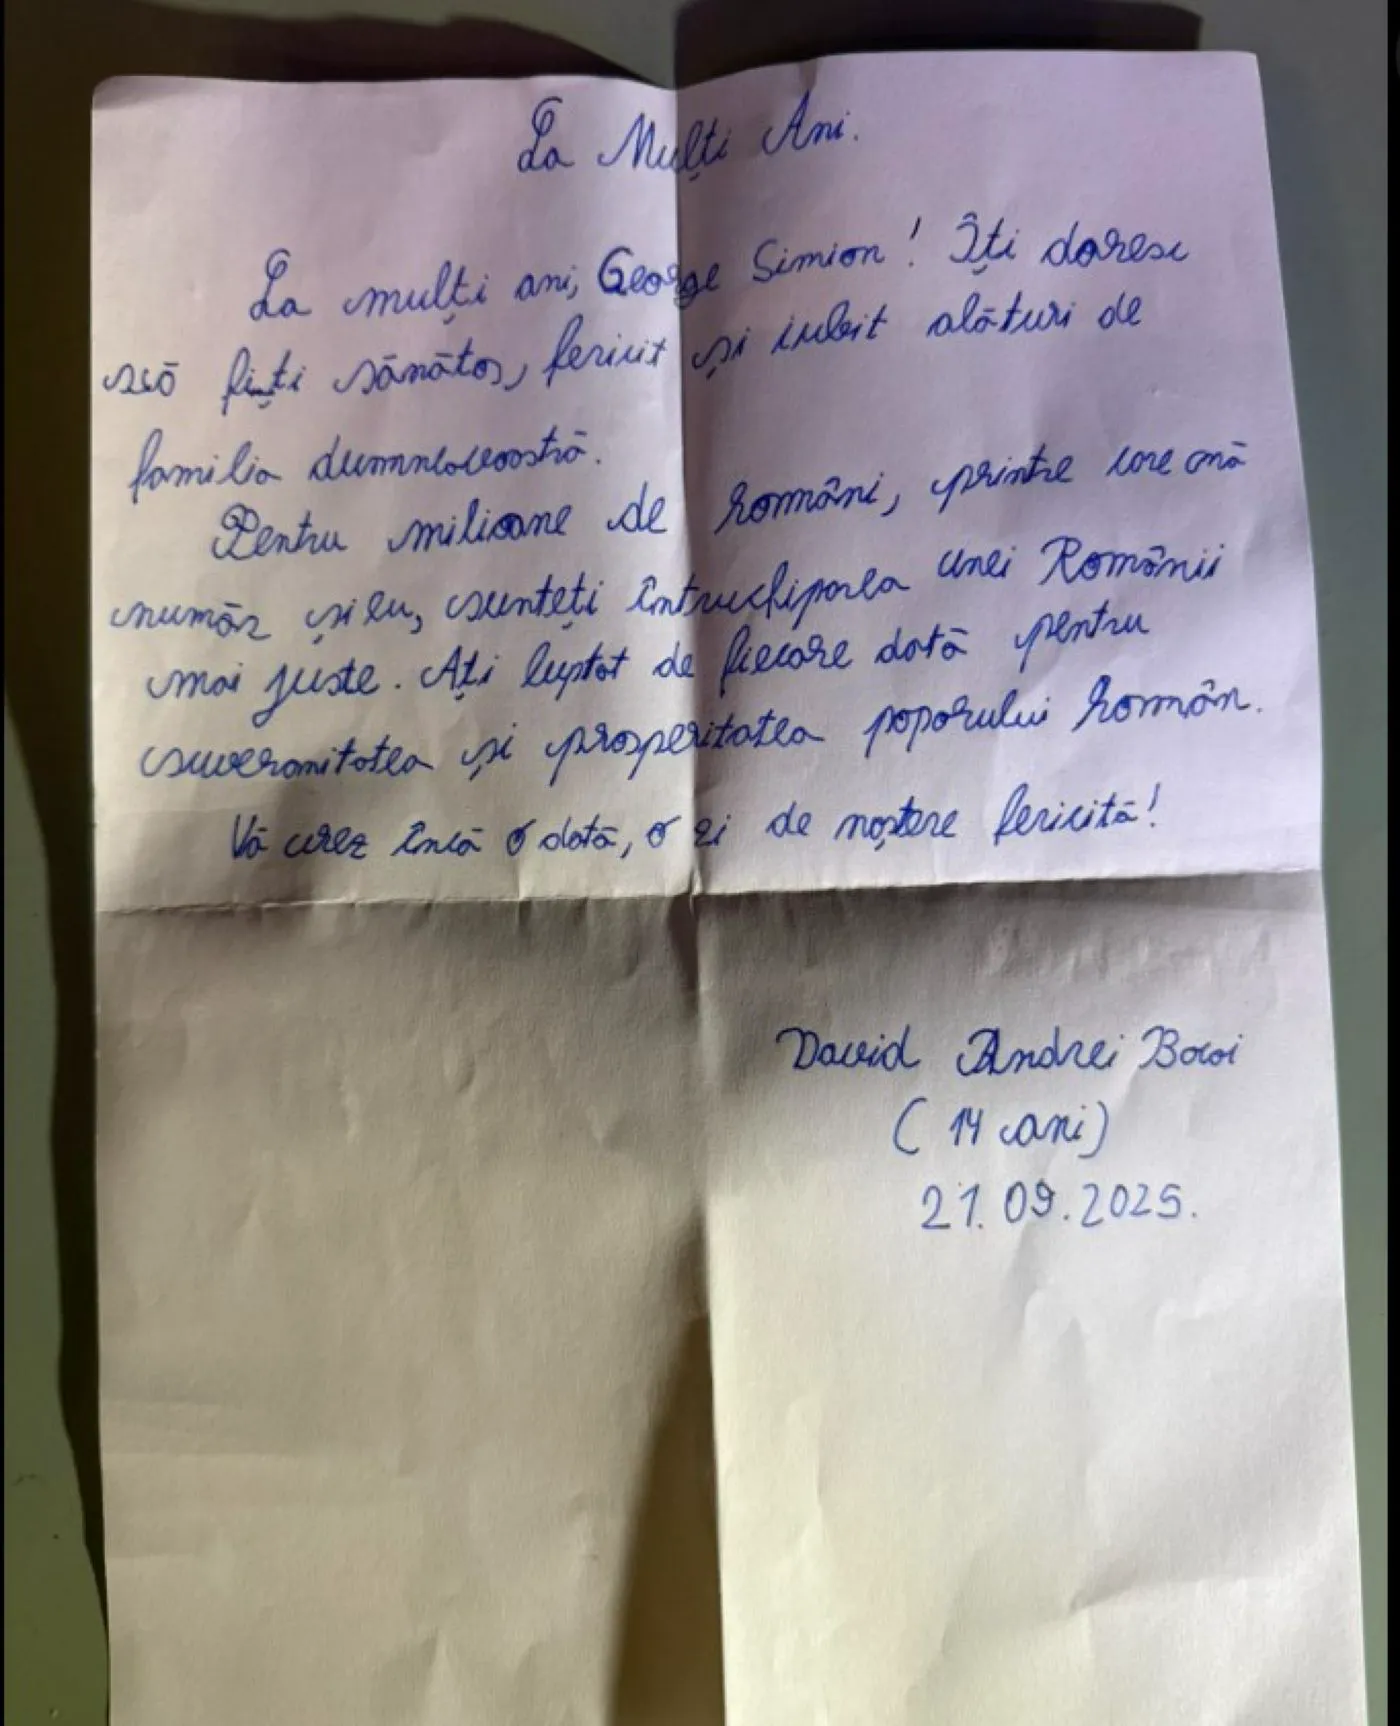 La Mulți Ani.
La mulți ani, George Simion! Îți doresc
să fiți sănătos, fericit și iubit alături de
familia dumneavoastră.
Pentru milioane de români, printre care mă
număr și eu, sunteți întruchiparea unei Românii
mai juste. Ați luptat de fiecare dată pentru
suveranitatea și prosperitatea poporului român.
Vă urez încă o dată, o zi de naștere fericită!
David Andrei Bocoi
(14 ani)
21.09.2025.